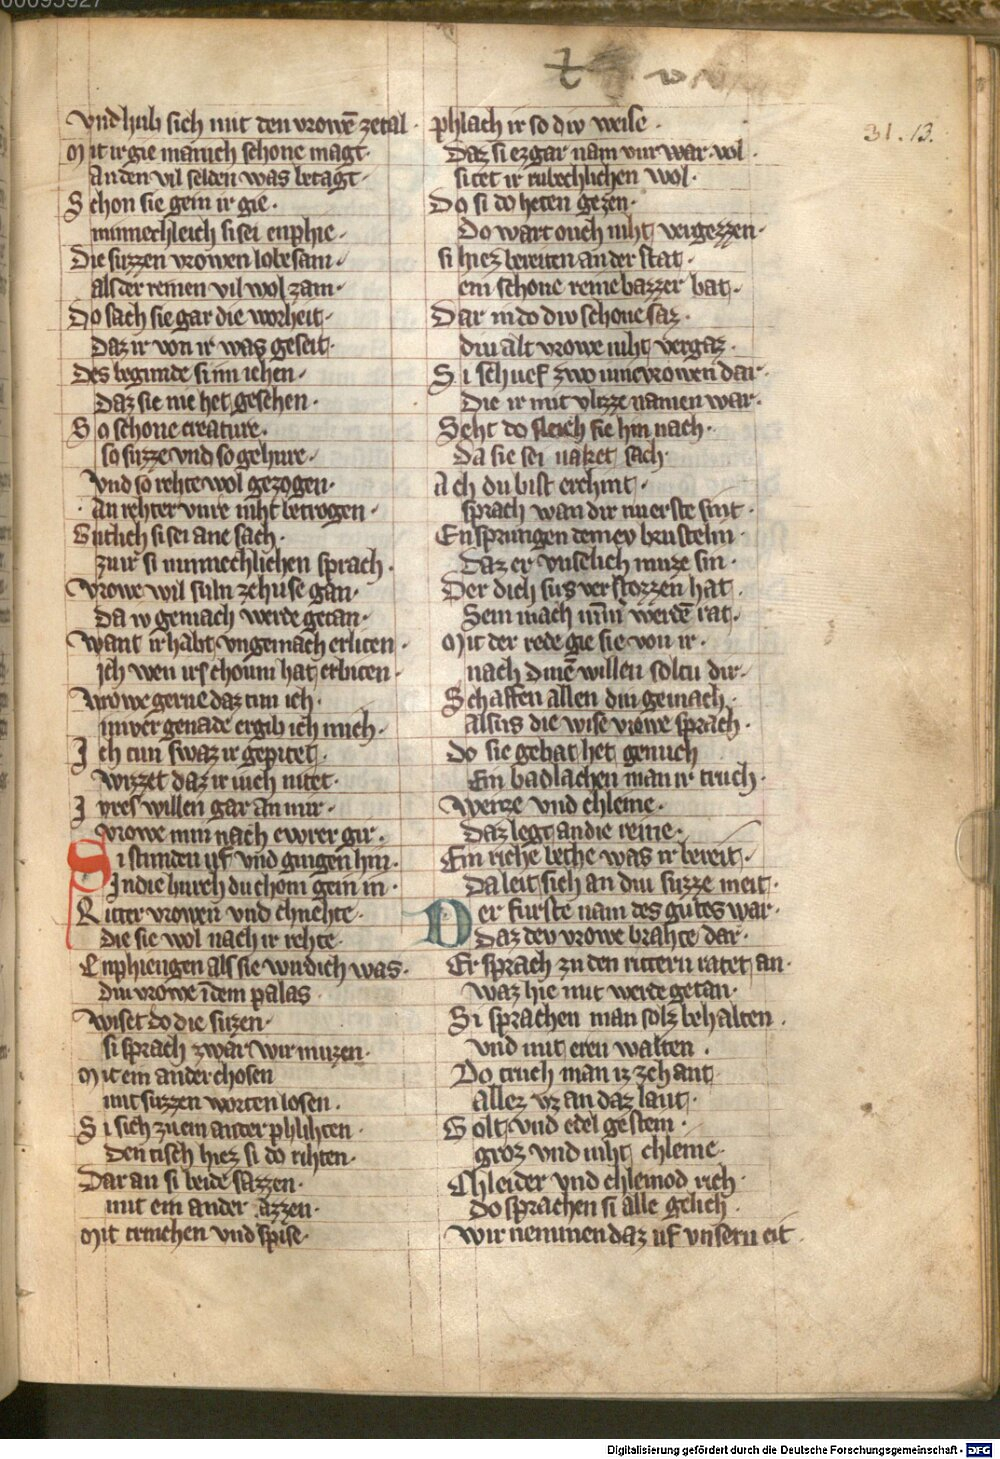 Vnd hub sich mit den vrowē zetal ·
Mit ir gie manich schone magt ·
An den vil selden was betagt ·
Schon sie gein ir gie ·
minnechleich si sei enphie ·
Die suzzen vrowen lobesam ·
als der reinen vil wol zam ·
Do sach sie gar die worheit ·
Daz ir von ir was geseit ·
Des begunde si im ichen ·
Daz sie nie het gesehen ·
So schone creature ·
so suzze vnd so gehure ·
Vnd so rehte wol gezogen ·
An rehter vure niht betrogen ·
Gutlich si sei ane sach ·
zu ir si minnechlichen sprach ·
Vrowe wil suln ze huse gan ·
Da iv gemach werde getan ·
Want ir habt vngemach erliten ·
ich wen irs choum hat erbiten ·
Vrowe gerne daz tun ich ·
in iver genade ergib ich mich ·
Ich tun swaz ir gepitet ·
wizzet daz ir mich nitet ·
Ivres willen gar an mir ·
vrowe min nach ewrer gir ·
Si stunden uf vnd gingen hin ·
In die burch du chom gein in ·
Ritter vrowen vnd chnehte ·
die sie wol nach ir rehte ·
Enphiengen als sie wirdich was ·
Diu vrowe ī dem palas
Wiset do die suzen ·
si sprach zwar wir muzen ·
Mit ein ander chosen
mit suzzen worten losen ·
Si sich zu ein anter phlihten ·
Den tisch hiez si do rihten ·
Dar an si beide sazzen ·
mit ein ander azzen ·
Mit trinchen vnd spise ·
phlach ir so div weise ·
Daz si ez gar nam vur war vol ·
sitet ir rubechlichen wol ·
Do si do heten gezen ·
Do wart ouch niht vergezzen ·
si hiez bereiten an der stat ·
ein schone reine bazzer bat ·
Dar in do div schone saz ·
diu alt vrowe niht vergaz ·
Si schuef zwo iuncvrowen dar ·
Die ir mit vlizze namen war ·
Seht do sleich sie hin nach ·
Da sie sei naket sach ·
Ach du bist erchint ·
sprach wan dir nu erste sint ·
Ensprungen deinev brustelin ·
Daz er vnselich muze sin ·
Der dich sus verstozzen hat ·
Sein mach nim̄ werdē rat ·
Mit der rede gie sie von ir ·
nach dinē willen soltu dir ·
Schaffen allen din gemach ·
Alsus die wise vrowe sprach ·
Do sie gebat het genuch
Ein badlachen man ir truch ·
Weize vnd chleine ·
Daz legt an die reine ·
Ein riche bette was ir bereit ·
Da leit sich an diu suzze meit ·
Der furste nam des gutes war ·
Daz dev vrowe brahte dar ·
Er sprach zu den rittern ratet an ·
waz hie mit werde getan ·
Si sprachen man solz behalten ·
vnd mit eren walten ·
Do truch man iz ze hant ·
allez vz an daz lant ·
Golt vnd edel gestein ·
groz vnd niht chleine ·
Chleider vnd chleinod rich ·
Do sprachen si alle gelich ·
wir nemmen daz uf vnsern eit ·
31.13.
Digitalisierung gefördert durch die Deutsche Forschungsgemeinschaft - DFG